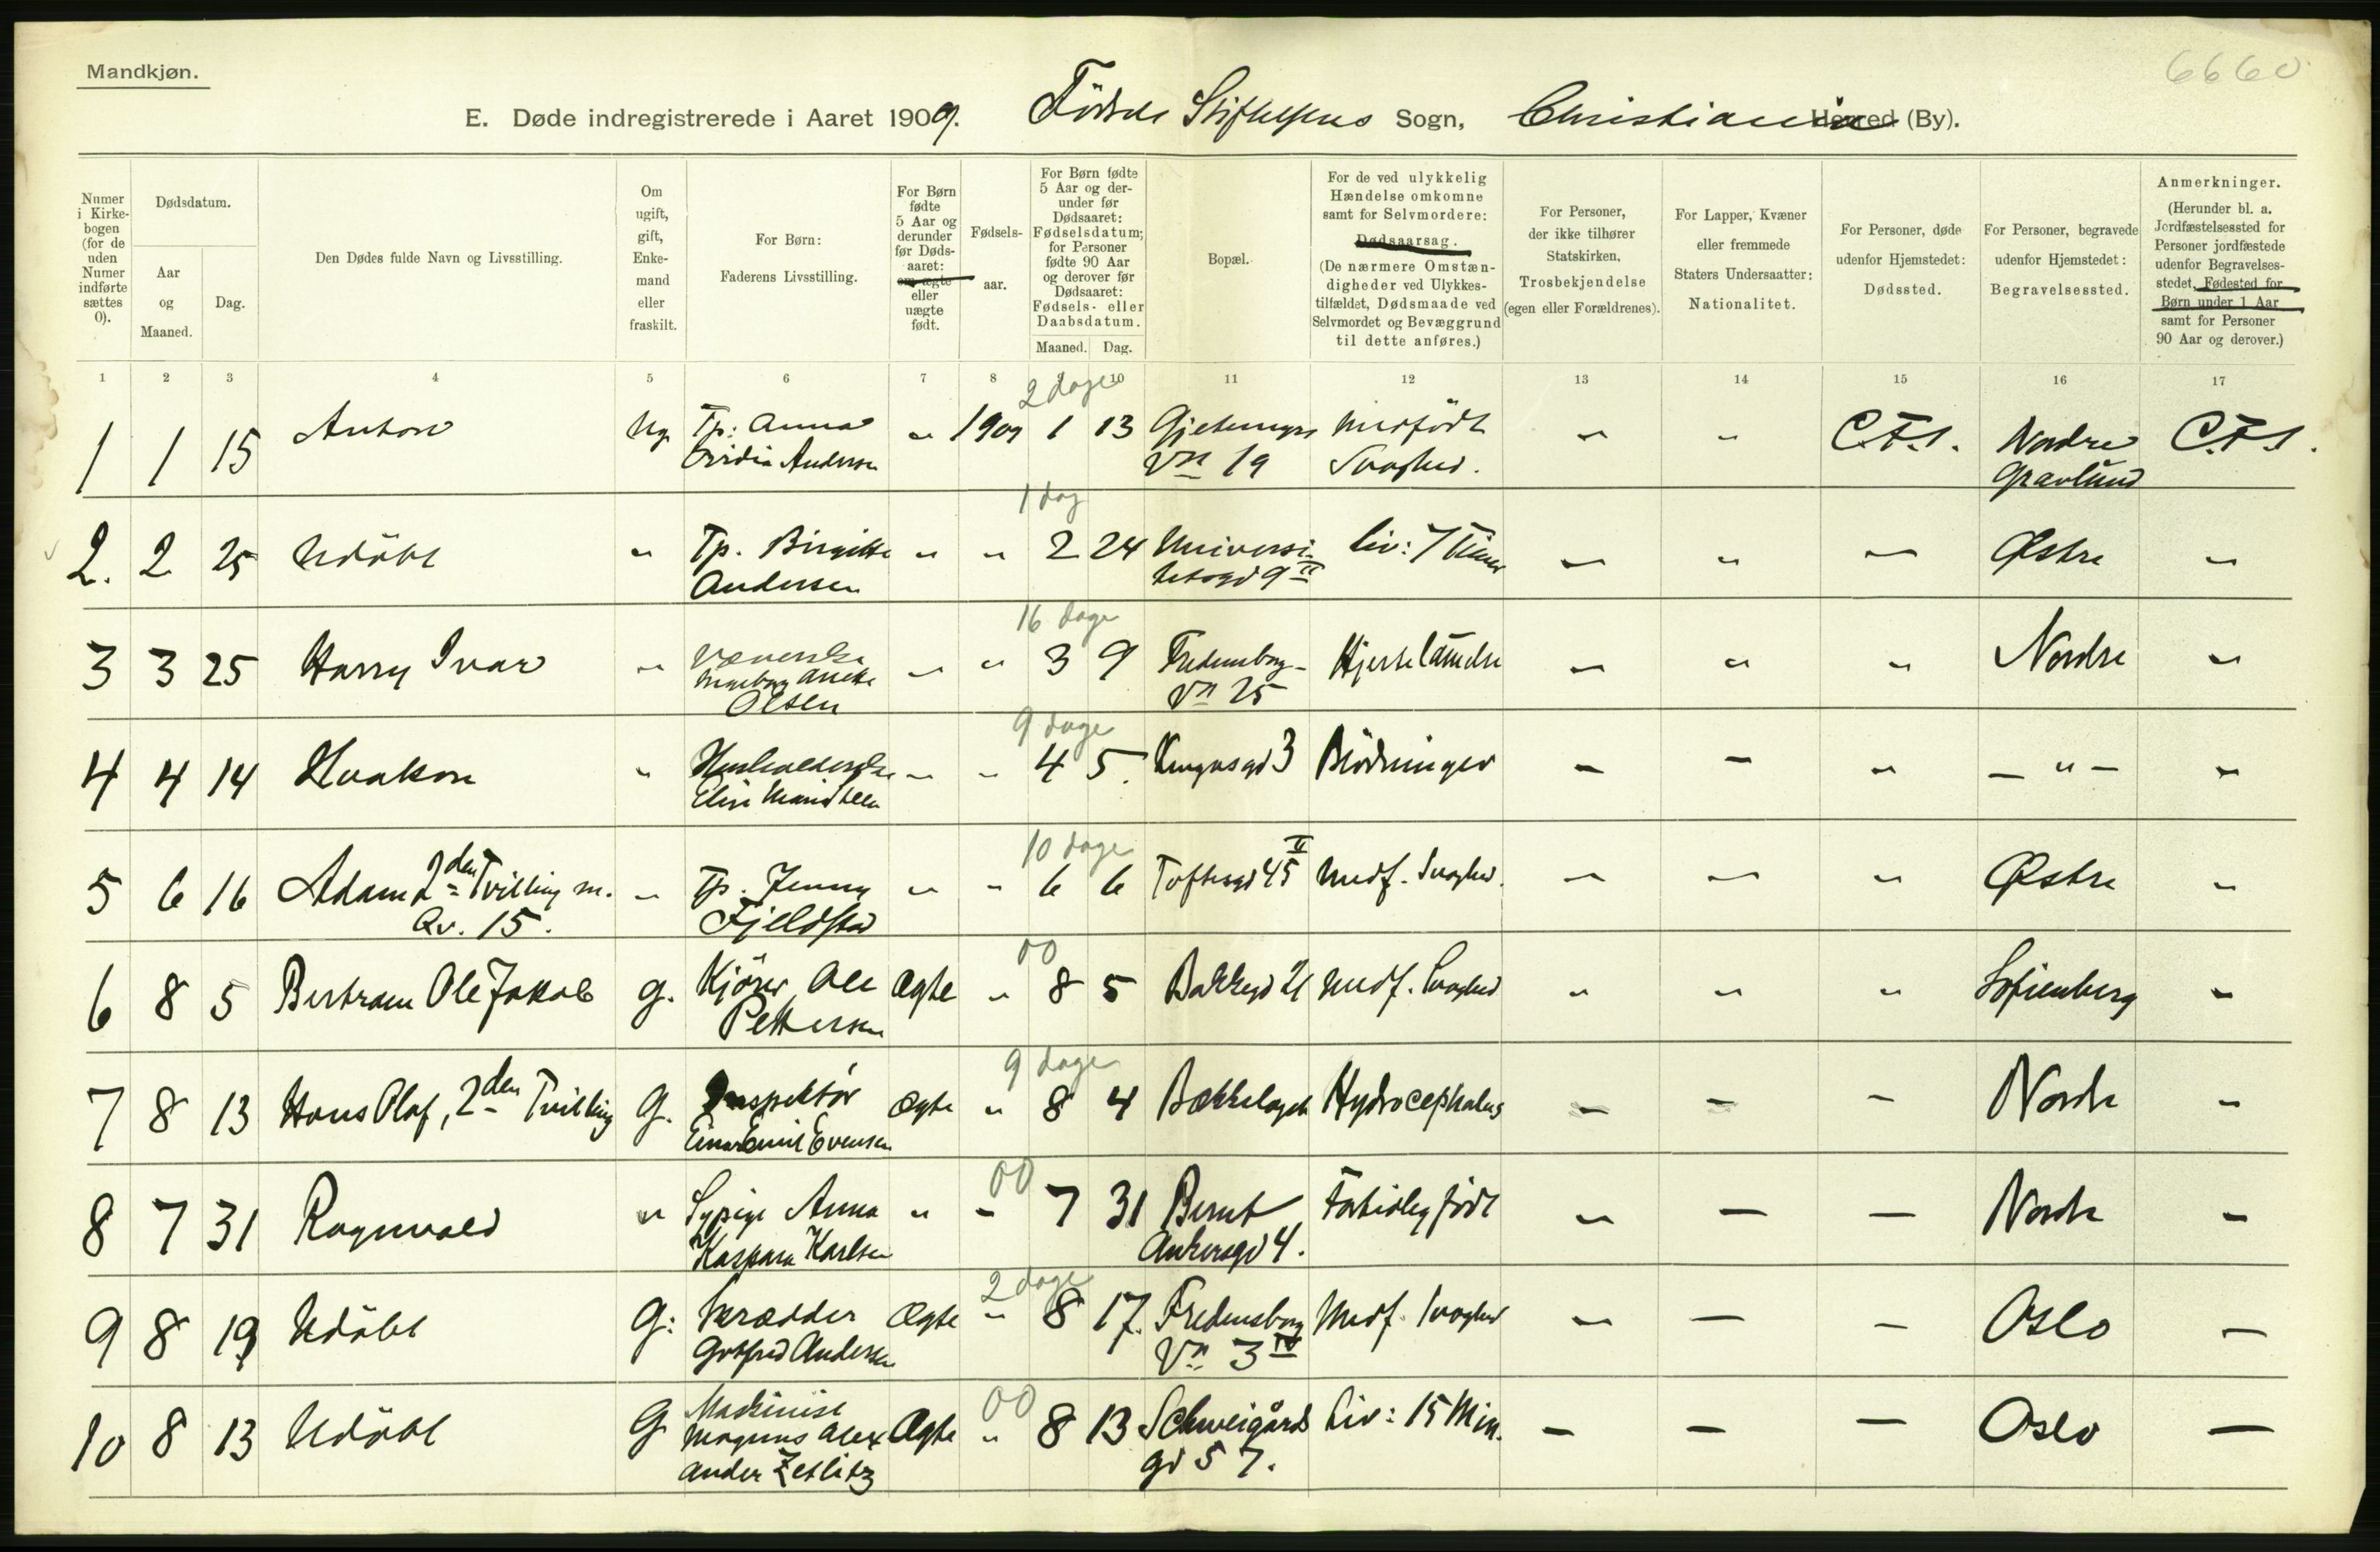 Mandkjøn.
6660
E. Døde indregistrerede i Aaret 1909. Födsels Stiftelsens Sogn, Christiania Herred (By).
Numer i Kirkebogen (for de uden Numer indførte sættes 0).
Dødsdatum.
Aar og Maaned.
Dag.
Den Dødes fulde Navn og Livsstilling.
Om ugift, gift, Enkemand eller fraskilt.
For Børn: Faderens Livsstilling.
For Børn fødte 5 Aar og derunder før Dødsaaret: om ægte eller uægte født.
Fødselsaar.
For Børn fødte 5 Aar og derunder før Dødsaaret: Fødselsdatum; for Personer fødte 90 Aar og derover før Dødsaaret: Fødsels- eller Daabsdatum.
Maaned. Dag.
Bopæl.
For de ved ulykkelig Hændelse omkomne samt for Selvmordere: Dødsaarsag. (De nærmere Omstændigheder ved Ulykkestilfældet, Dødsmaade ved Selvmordet og Bevæggrund til dette anføres.)
For Personer, der ikke tilhører Statskirken, Trosbekjendelse (egen eller Forældrenes).
For Lapper, Kvæner eller fremmede Staters Undersaatter: Nationalitet.
For Personer, døde udenfor Hjemstedet: Dødssted.
For Personer, begravede udenfor Hjemstedet: Begravelsessted.
Anmerkninger. (Herunder bl. a. Jordfæstelsessted for Personer jordfæstede udenfor Begravelsesstedet, Fødested for Børn under 1 Aar samt for Personer 90 Aar og derover.)
1 2 3 4 5 6 7 8 9 10 11 12 13 14 15 16 17
2 dage
1 1 15 Anton Ug. Tp: Anna " 1909 1 13 Medfödt " " C.F.S. Nordre C.F.S.
Andersen Vn 19 Svaghed. Gravlund
1 dag
2. 2 25 Udöbt " Tp. Birgitte " " 2 24 Universi- Liv: 7 Timer " " " Østre "
Andersen tetsgd 9 II
16 dage
3 3 25 Harry Ivar " Væverske " " 3 9 Fredensborg- Hjertelamelse " " " Nordre "
Ingeborg
Olsen Vn 25
9 dage
4 4 14 Haakon " Husholderske " " 4 5. 3 Blödninger " " " — " — "
10 dage
5 6 16 Adam 2den Tvilling m. " Tp. Jenny " " 6 6 Toftesgd 45 II Medf. Svaghed. " " " Østre "
Qv. 15. Fjeldstad
00
6 8 5 Bertram Ole Jakob g. Kjörer Ole Ægte " 8 5 Bakkegd 21 Medf. Svaghed " " " Sofienberg "
Pettersen
9 dage
7 8 13 Hans Olaf, 2den Tvilling G. Inspektör Ægte " 8 4 Bækkelaget Hydrocephalus " " " Nordre "
Einar Emil Evensen
00
8 7 31 Ragnvald " Sypige Anna " " 7 31 Bernt Fortidlig födt " " " Nordre "
Kaspara Karlsen Ankersgd 4.
2 dage
9 8 19 Udöbt G: Skrædder Ægte " 8 17. Fredensborg Medf. Svaghed " " " Oslo "
Gotfred Andersen Vn 3 IV
00
10 8 13 Udöbt G Maskinist Ægte " 8 13 Schweigårds Liv: 15 Min. — — — Oslo —
Magnus Alex
ander Zetlitz gd 57.